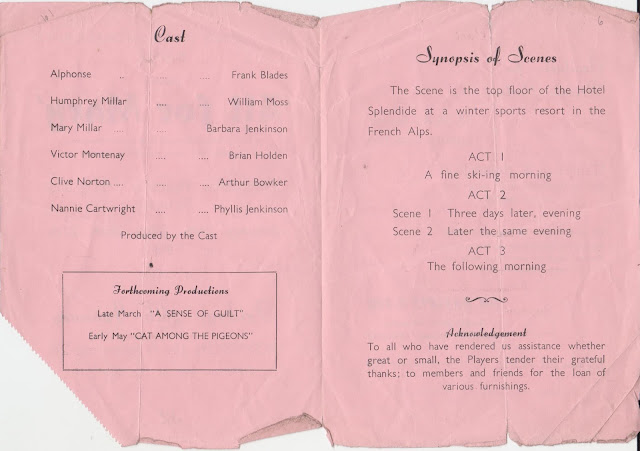 Cast
Alphonse .. .... .... Frank Blades
Humphrey Millar .... .... William Moss
Mary Millar .... .... Barbara Jenkinson
Victor Montenay .... .... Brian Holden
Clive Norton .... .... Arthur Bowker
Nannie Cartwright .... .... Phyllis Jenkinson
Produced by the Cast
Forthcoming Productions
Late March "A SENSE OF GUILT"
Early May "CAT AMONG THE PIGEONS"
6
Synopsis of Scenes
The Scene is the top floor of the Hotel
Splendide at a winter sports resort in the
French Alps.
ACT 1
A fine ski-ing morning
ACT 2
Scene 1 Three days later, evening
Scene 2 Later the same evening
ACT 3
The following morning
Acknowledgement
To all who have rendered us assistance whether
great or small, the Players tender their grateful
thanks; to members and friends for the loan of
various furnishings.